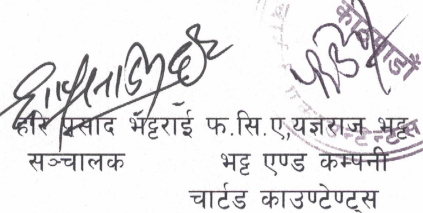 हरि प्रसाद भट्टराई फ.सि.ए,यज्ञराज भट्ट
सञ्चालक भट्ट एण्ड कम्पनी
चार्टड काउण्टेण्ट्स